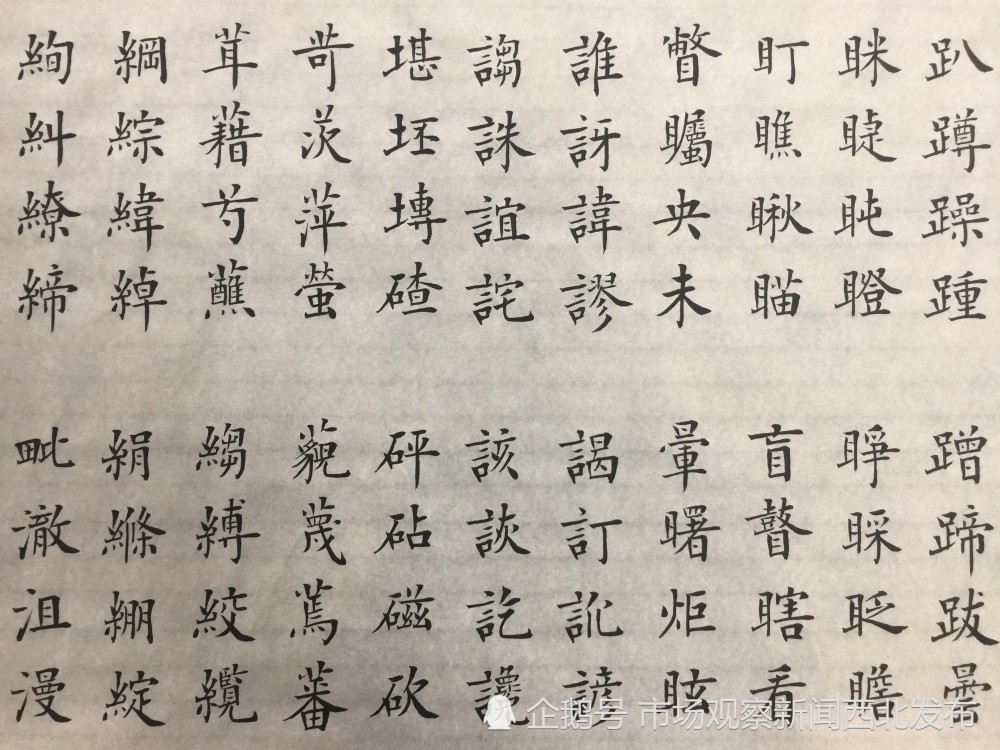 趴蹲躁踵
眯睫盹瞪
盯瞧瞅瞄
瞥矚央未
誰訝諱謬
謅誅誼詫
堪坯塼碴
苛茨萍螢
茸藉芍蘸
綱綜緯綽
絢糾繚締
蹭蹄跋曇
睜睬眨瞻
盲瞽瞎看
暈曙炬眩
謁訂訛諺
該詼訖讒
砰砧磁砍
藐蔑蔫蕃
縐縛絞纜
絹縧繃綻
毗澈沮漫
企鹅号 市场观察新闻西北发布